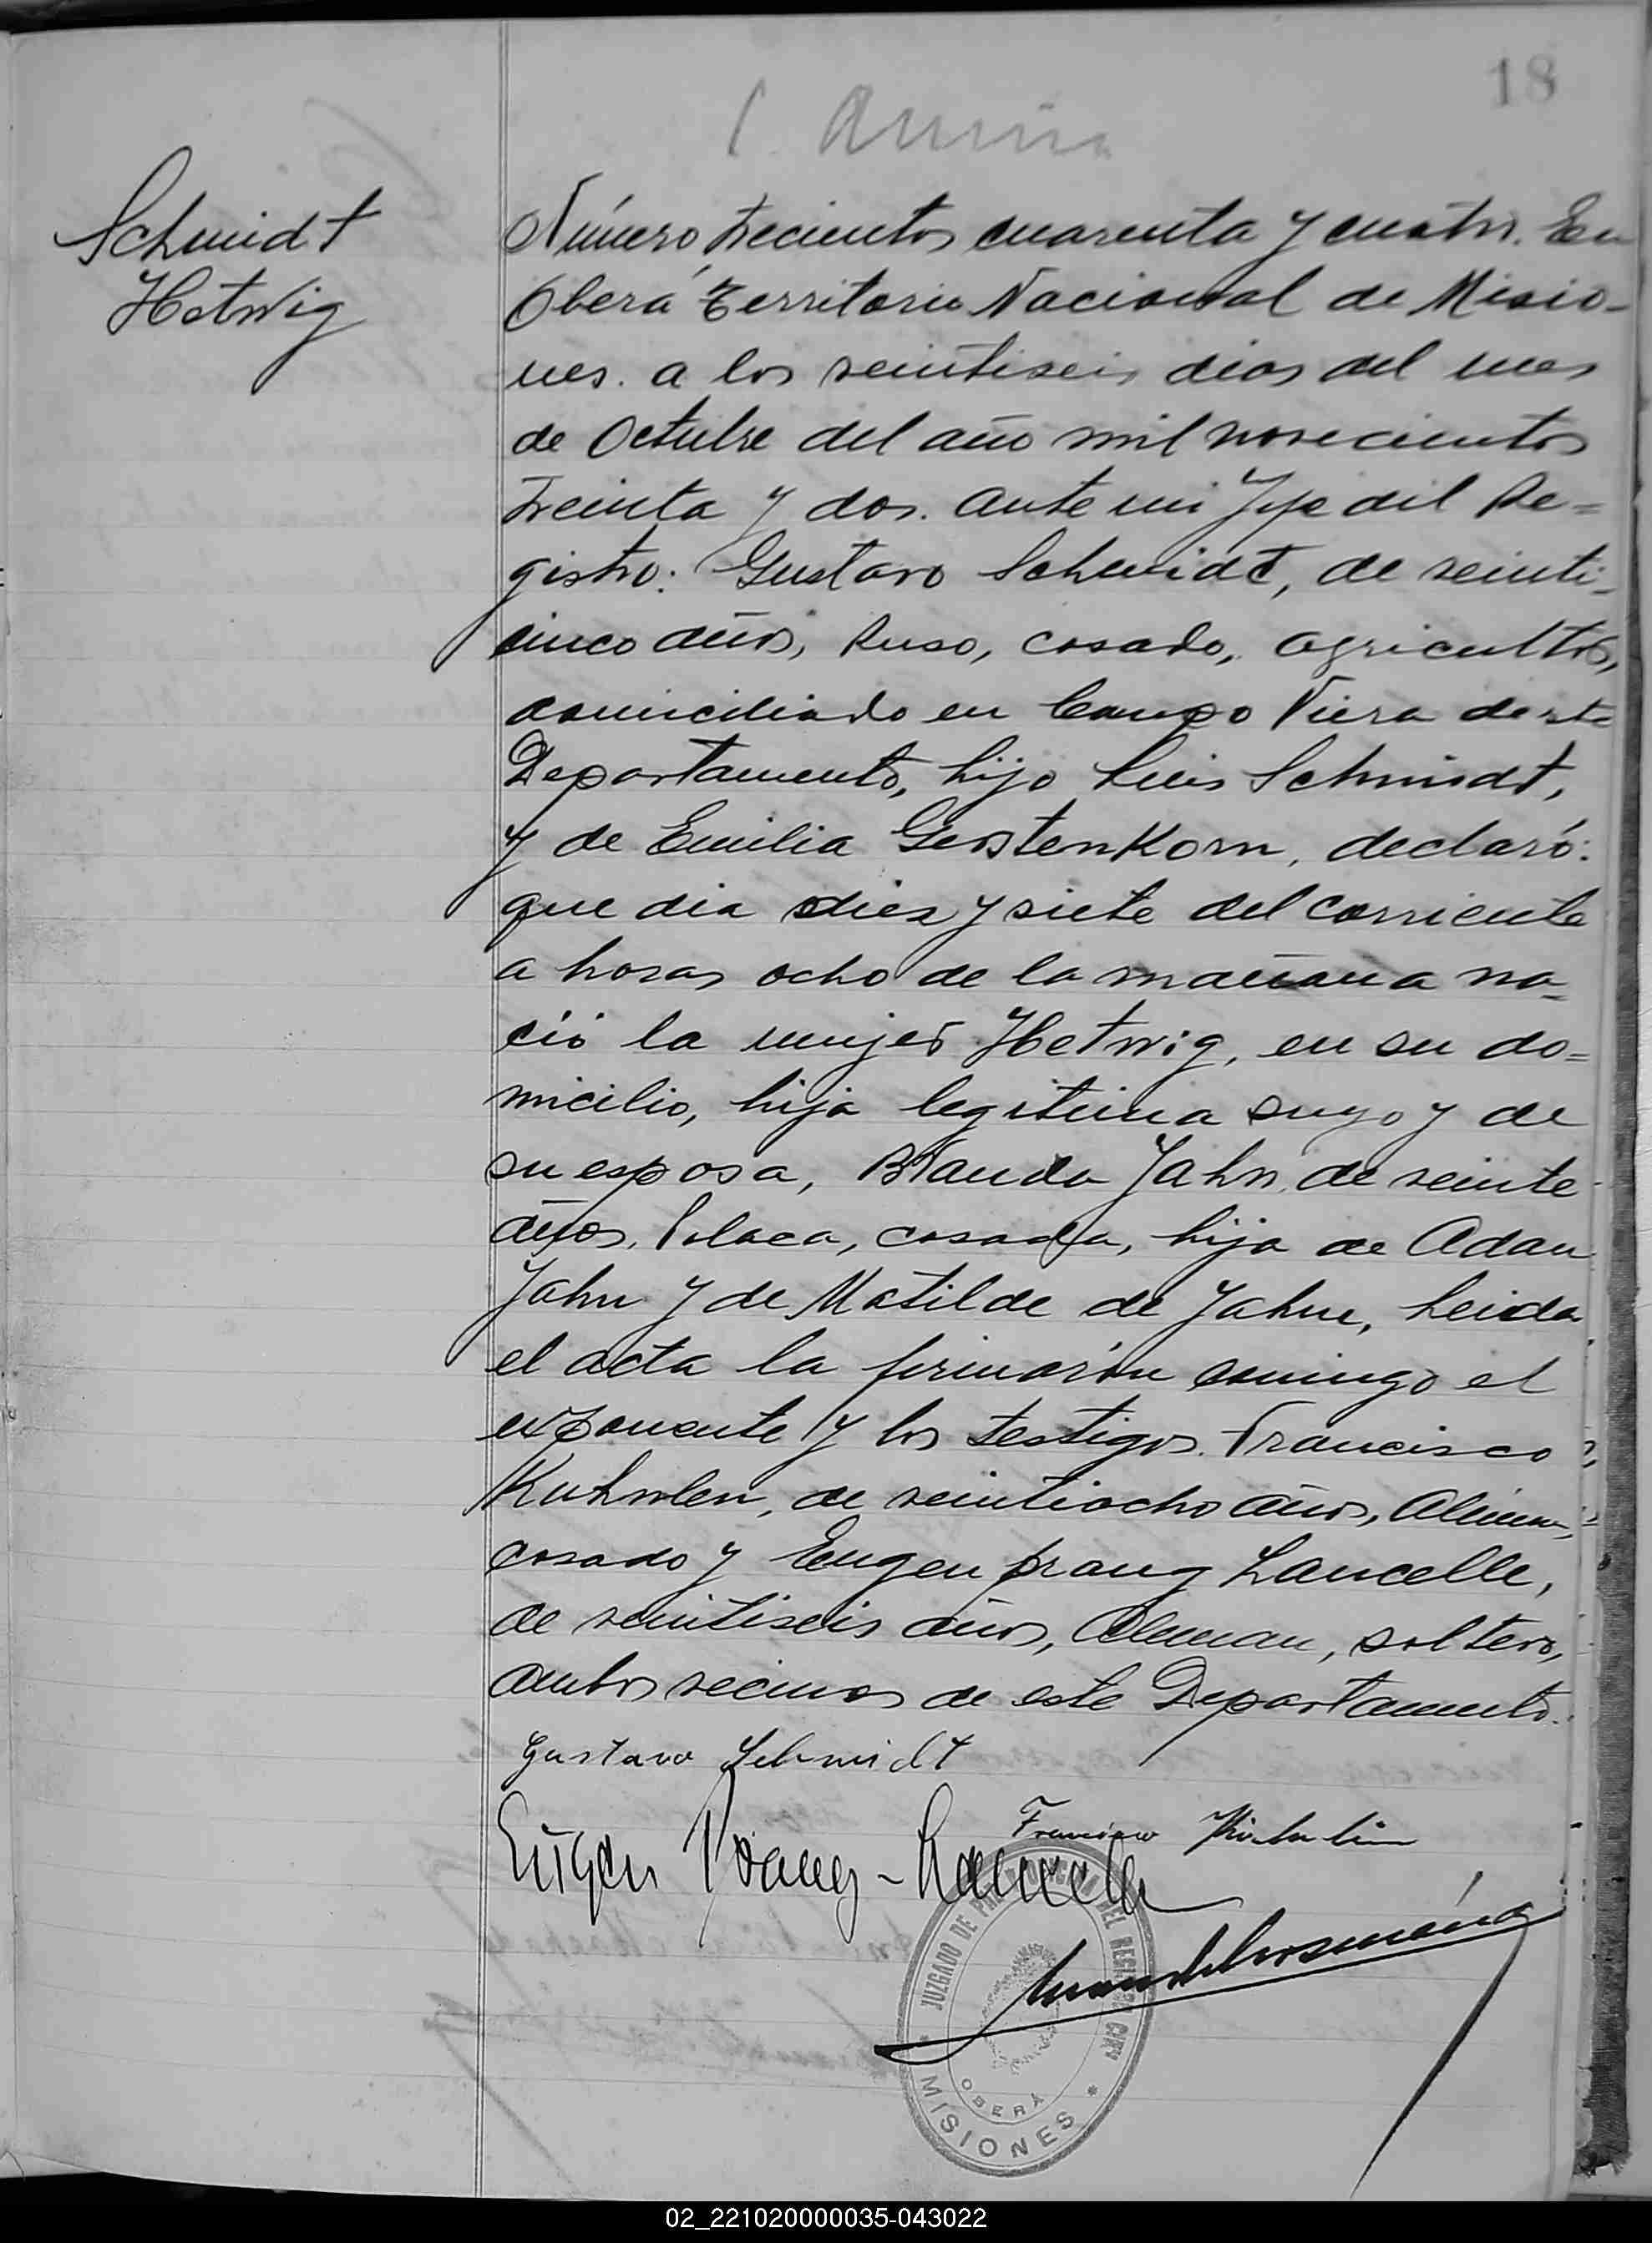 18
Schmidt
Hetwig
Número trecientos cuarenta y cuatro. En
Oberá Territorio Nacional de Misio-
nes. a los veintiseis dias del mes
de Octubre del año mil novecientos
treinta y dos. ante mi Jefe del Re=
gistro: Gustavo Schmidt, de veinti-
cinco años, Ruso, casado, agricultor,
domiciliado en Campo Viera de este
Departamento, hijo Luis Schmidt,
y de Emilia Gerstenkorn, declaró:
que dia diez y siete del corriente
a horas ocho de la mañana na-
ció la mujer Hetwig, en su do=
micilio, hija legitima suyo y de
su esposa, Wanda Jahn, de veinte
años, Polaca, casada, hija de Adan
Jahn y de Matilde de Jahn, Leida
el acta la firmarón conmigo el
exponente y los testigos. Francisco
de veintiocho años, Aleman,
casado y Eugen Prang Lancelle,
de veintiseis años, Aleman, soltero,
ambos vecinos de este Departamento.
Gustavo Schmidt
Francisco
Eugen Prang-Lancelle
JUZGADO DE PAZ DEL REGISTRO CIVIL
OBERÁ
* MISIONES *
02_221020000035-043022